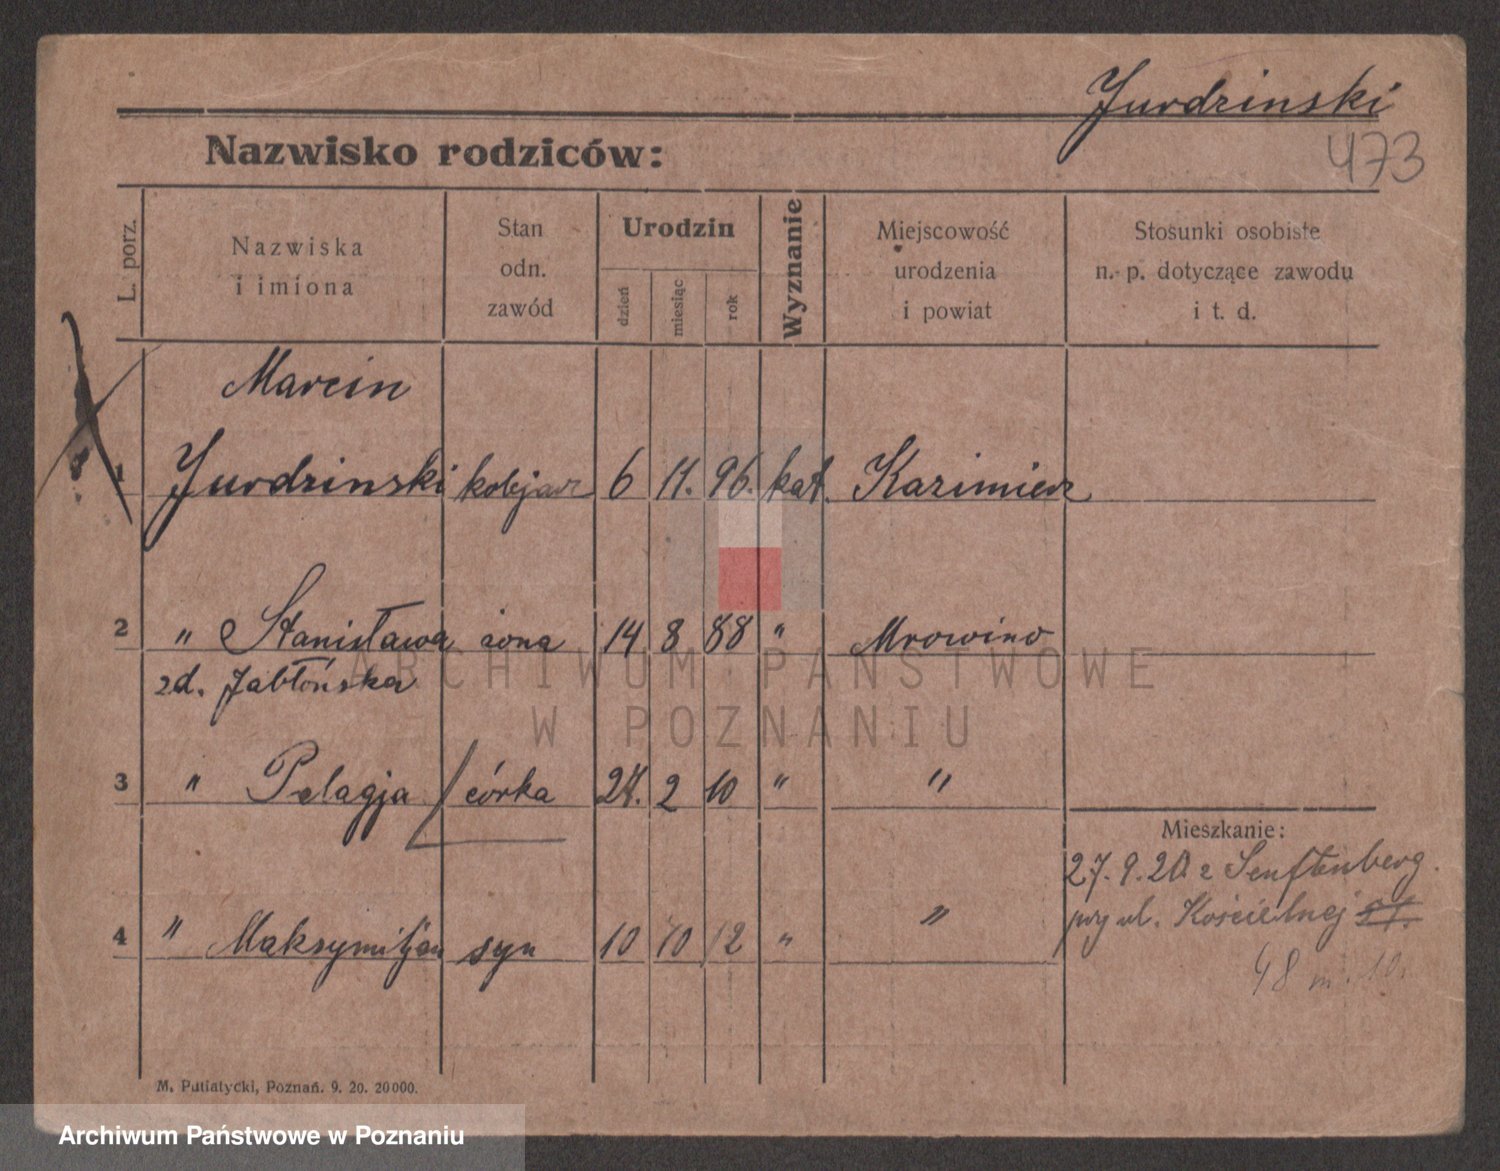 Jurdzinski
473
Nazwisko rodziców:
L. porz.
Nazwiska
i imiona
Stan
odn.
zawód
Urodzin
dzień
miesiąc
rok
Wyznanie
Miejscowość
urodzenia
i powiat
Stosunki osobiste
n. p. dotyczące zawodu
i t. d.
Marcin
1 Jurdzinski kolejarz 6 11. 96. kat. Kazimierz
2 " Stanisława żona 14 8 88 " Mrowino
zd. Jabłońska
3 " Pelagja córka 27. 2 10 " "
Mieszkanie:
27. 9. 20. z Senftenberg.
przy ul. Kościelnej
4 " Maksymiljan syn 10 10 12 " "
48 m. 10.
M. Putiatycki, Poznań. 9. 20. 20000.
ARCHIWUM PAŃSTWOWE
W POZNANIU
Archiwum Państwowe w Poznaniu